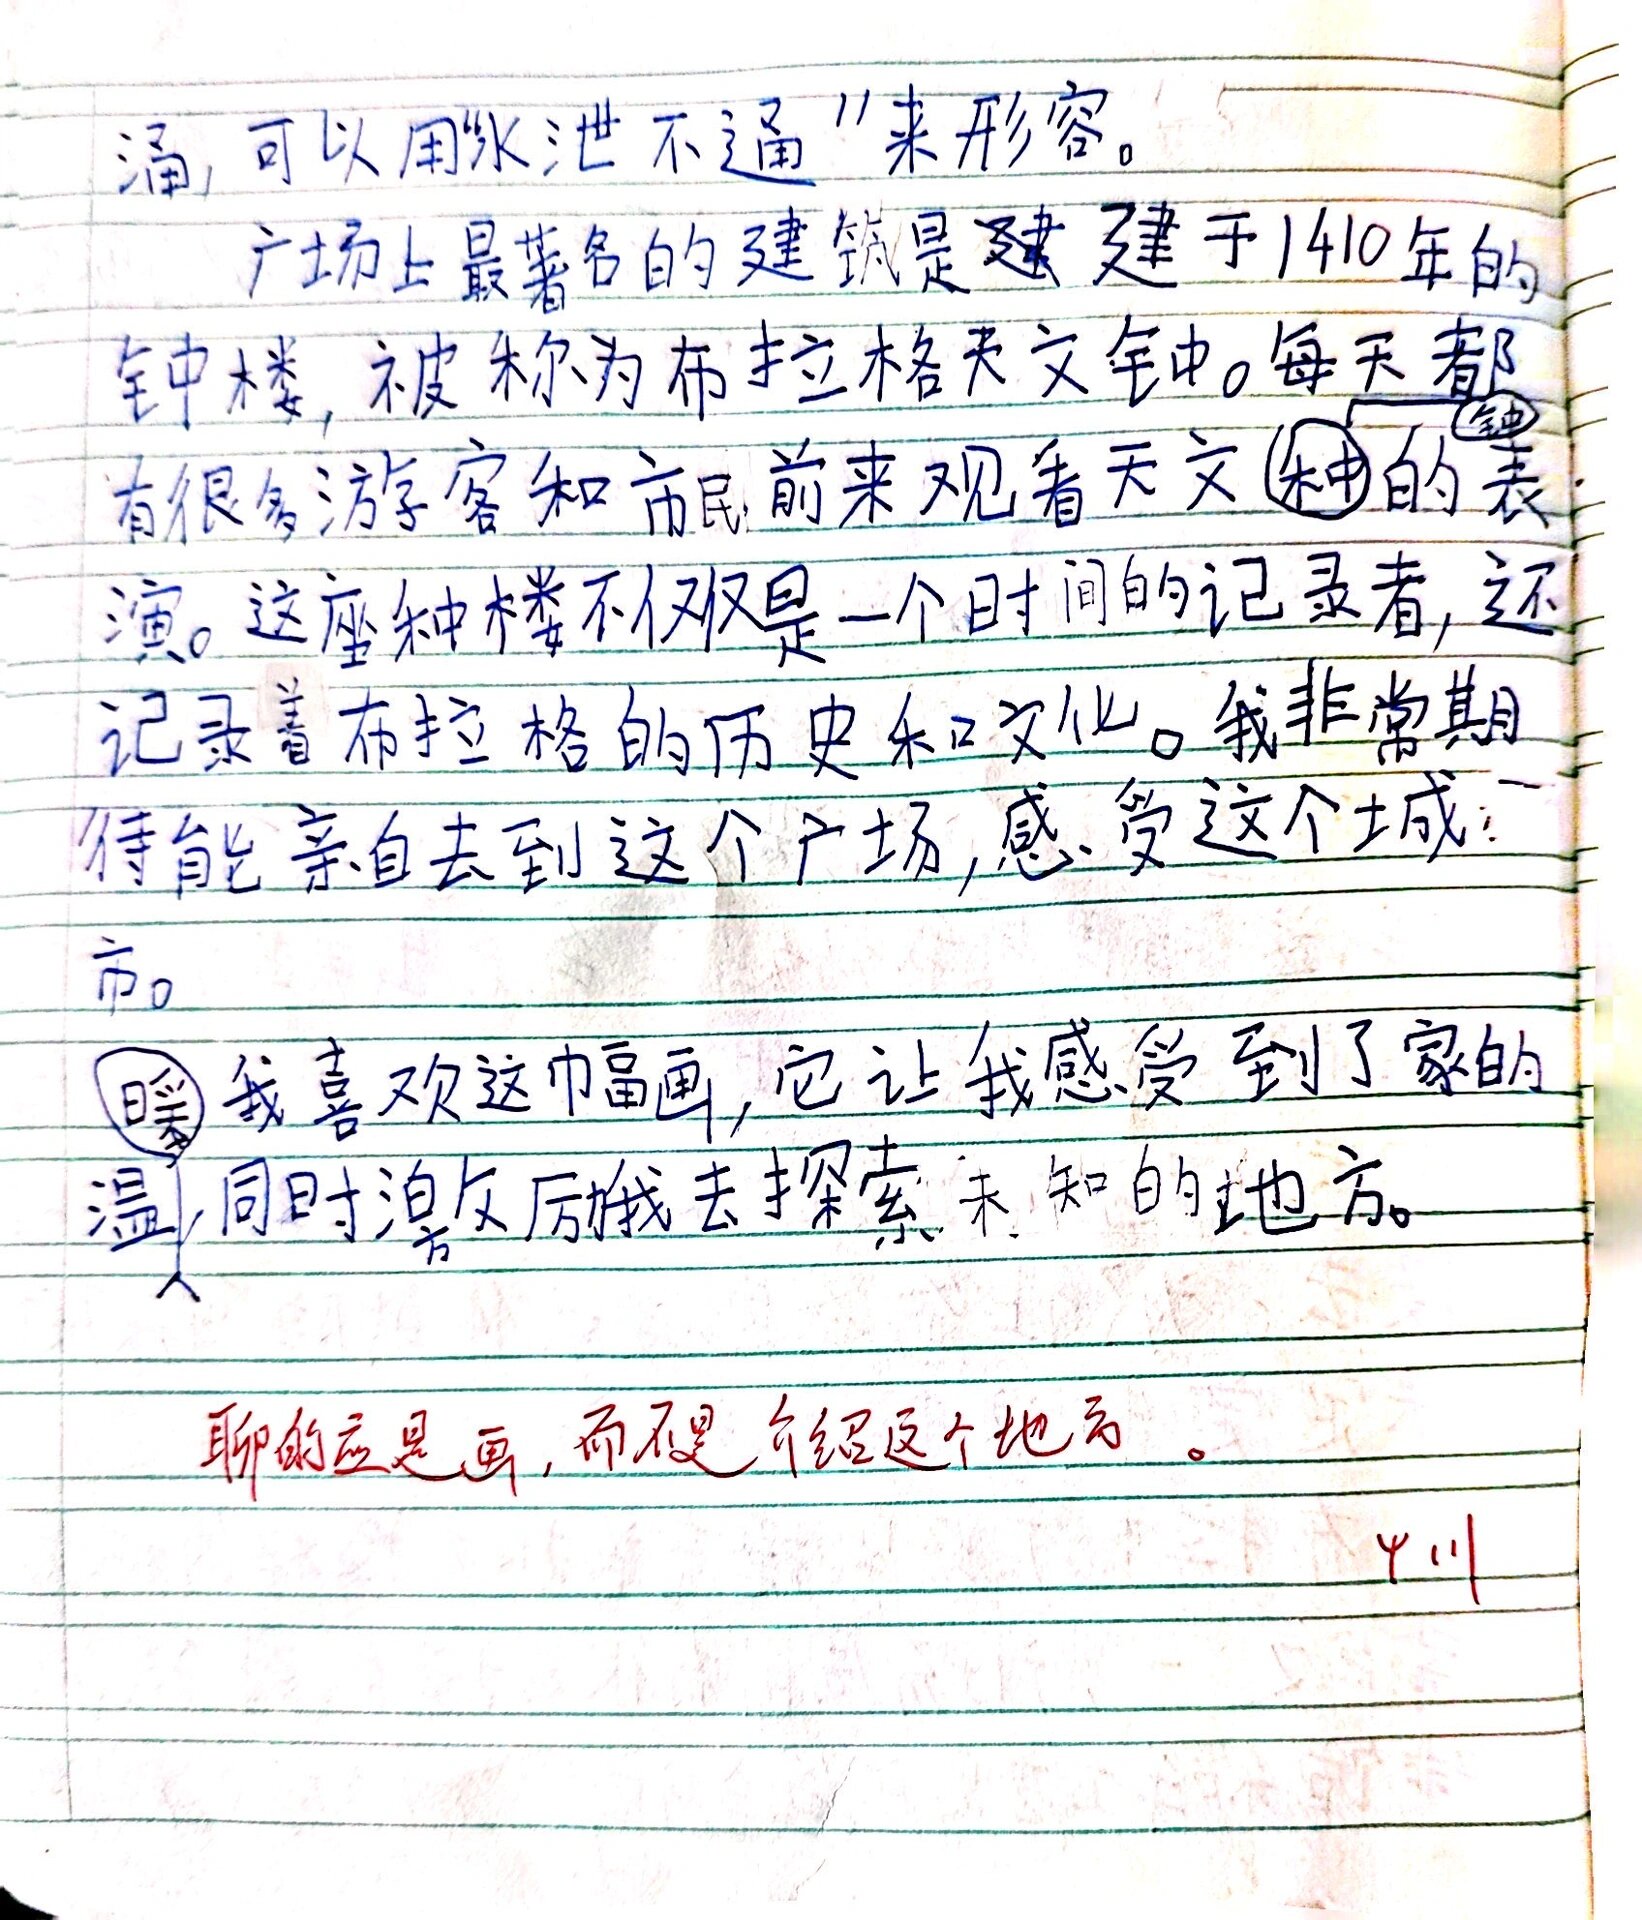 涌,可以用“水泄不通”来形容。
广场上最著名的建筑是建于1410年的
钟楼,被称为布拉格天文钟。每天都
钟
有很多游客和市民前来观看天文种的表
演。这座种楼不仅仅是一个时间的记录者,还
记录着布拉格的历史和文化。我非常期
待能亲自去到这个广场,感受这个城
市。
暖 我喜欢这巾幅画,它让我感受到了家的
温,同时激厉哦去探索未知的地方。
聊的应是画,而不是介绍这个地方。